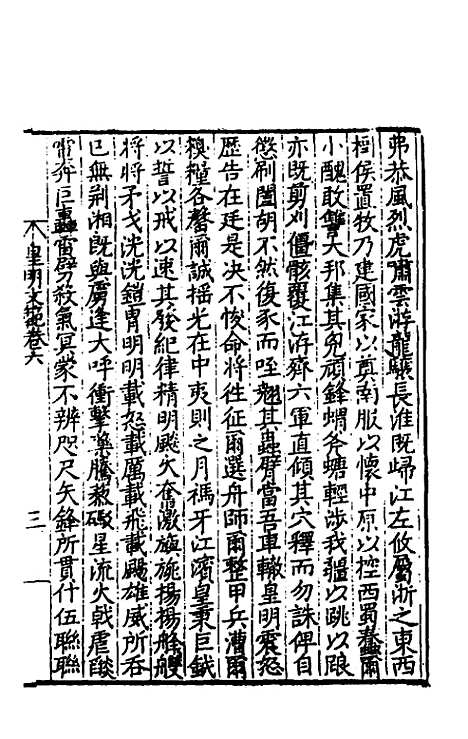 弗恭風烈虎嘯雲泝龍驤長淮既歸江左攸屬浙之東西
樹侯置牧乃建國家以奠南服以懷中原以控西蜀蠢爾
小醜敢讐大邦集其兇頑鋒蝟斧螗輕涉我疆以跳以踉
亦既剪刈僵骸覆江泝齊六軍直傾其穴釋而勿誅俾自
懲刷闔胡不然復豕而咥翹其蟲臂當吾車轍皇明震怒
歷告在廷是决不悛命將徃征爾選舟師爾整甲兵漕爾
糗糧各罄爾誠揺光在中夷則之月禡牙江濱皇秉巨鉞
以誓以戒以速其發紀律精明飈火奮激旌旄揚揚艨艟
將將矛戈洸洸鎧冑明明載怒載厲載飛載颺雄威所吞
已無荆湘既與虜逢大呼衝擊奰騰熬礟星流火戟虐燄
電奔巨轟雷劈刀殺氣冥蒙不辨咫尺矢鋒所貫什伍聯聯
皇明文範卷六
三